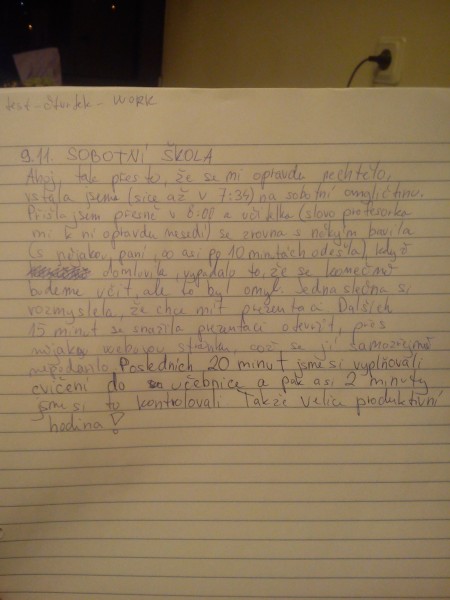 test - čtvrtek - WORK
9.11. SOBOTNÍ ŠKOLA
Ahoj, tak přesto, že se mi opravdu nechtělo,
vstala jsem (sice až v 7:34) na sobotní angličtinu.
Přišla jsem přesně v 8:00 a učitelka (slovo profesorka
mi k ní opravdu nesedí) se zrovna s někým bavila
(s nějakou paní, co asi po 10 minutách odešla) když
domluvila, vypadalo to, že se konečně
budeme učit, ale to byl omyl. Jedna slečna si
rozmyslela, že chce mít prezentaci. Dalších
15 minut se snažila prezentaci otevřít, přes
nějakou webovou stránku, což se jí samozřejmě
nepodařilo. Posledních 20 minut jsme si vyplňovali
cvičení do učebnice a pak asi 2 minuty
jsme si to kontrolovali. Takže velice produktivní
hodina!